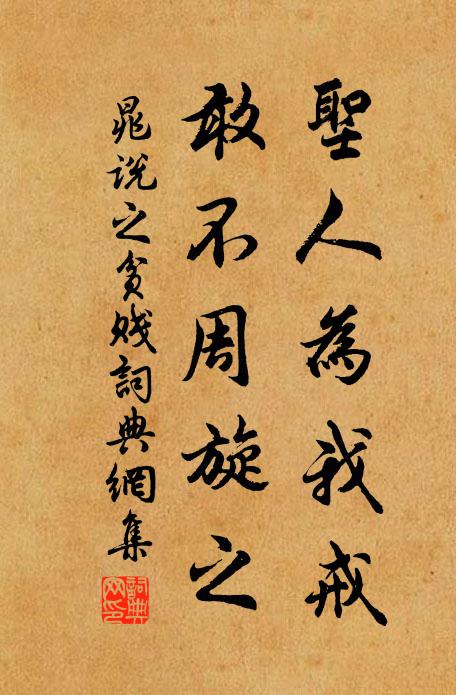 聖人為我戒
敢不周旋之
晁說之貧賤詞典網集
詞典網印